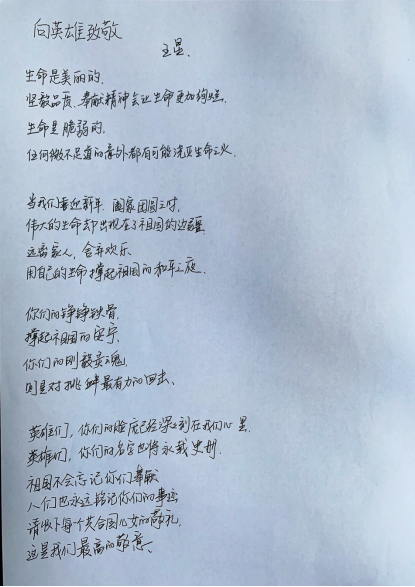 向英雄致敬
王星
生命是美丽的.
坚毅品质、奉献精神会让生命更加绚烂.
生命是脆弱的.
任何微不足道的意外都有可能浇灭生命之火.
当我们喜迎新年、阖家团圆之时.
伟大的生命却出现在了祖国的边疆
远离家人, 舍弃欢乐
用自己的生命撑起祖国的和平之庭.
你们的铮铮铁骨.
撑起祖国的安宁.
你们的刚毅灵魂.
则是对挑衅最有力的回击、
英雄们, 你们的 已经深刻在我们心里.
英雄们, 你们的名字也将永载史册.
祖国不会忘记你们奉献
人们也永远铭记你们的事迹
请收下每个共合国儿女的敬礼.
这是我们最高的敬意、